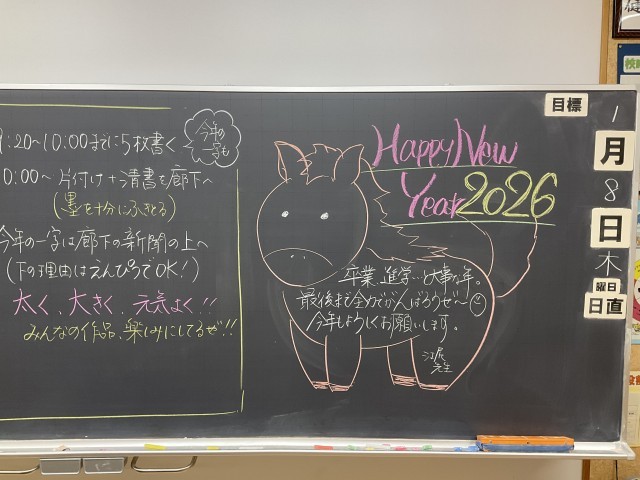 9:20~10:00までに5枚書く
今年の
一字も
10:00~ 片付け+清書を廊下へ
(墨を十分にふきとる)
今年の一字は廊下の新聞の上へ
(下の理由はえんぴつでOK!)
太く、大きく、元気よく!!
みんなの作品、楽しみにしてるぜ!!
Happy New
Year 2026
卒業、進学…と大事な年。
最後まで全力でがんばろうぜー
今年もよろしくお願いします。
江尾
先生
目標
1
月
8
日
木
曜日
日直